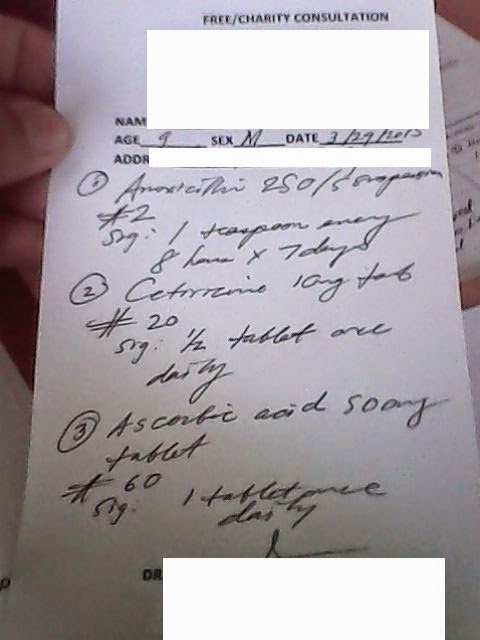 FREE/CHARITY CONSULTATION
NAM
AGE 9 SEX M DATE 3/29/2013
ADDR
① Amoxicillin 250/5 suspension
#2
Sig: 1 teaspoon every
8 hours x 7 days
② Cetirizine 10mg tab
# 20
Sig: 1/2 tablet once
daily
③ Ascorbic acid 500mg
tablet
# 60
Sig: 1 tablet once
daily
DR